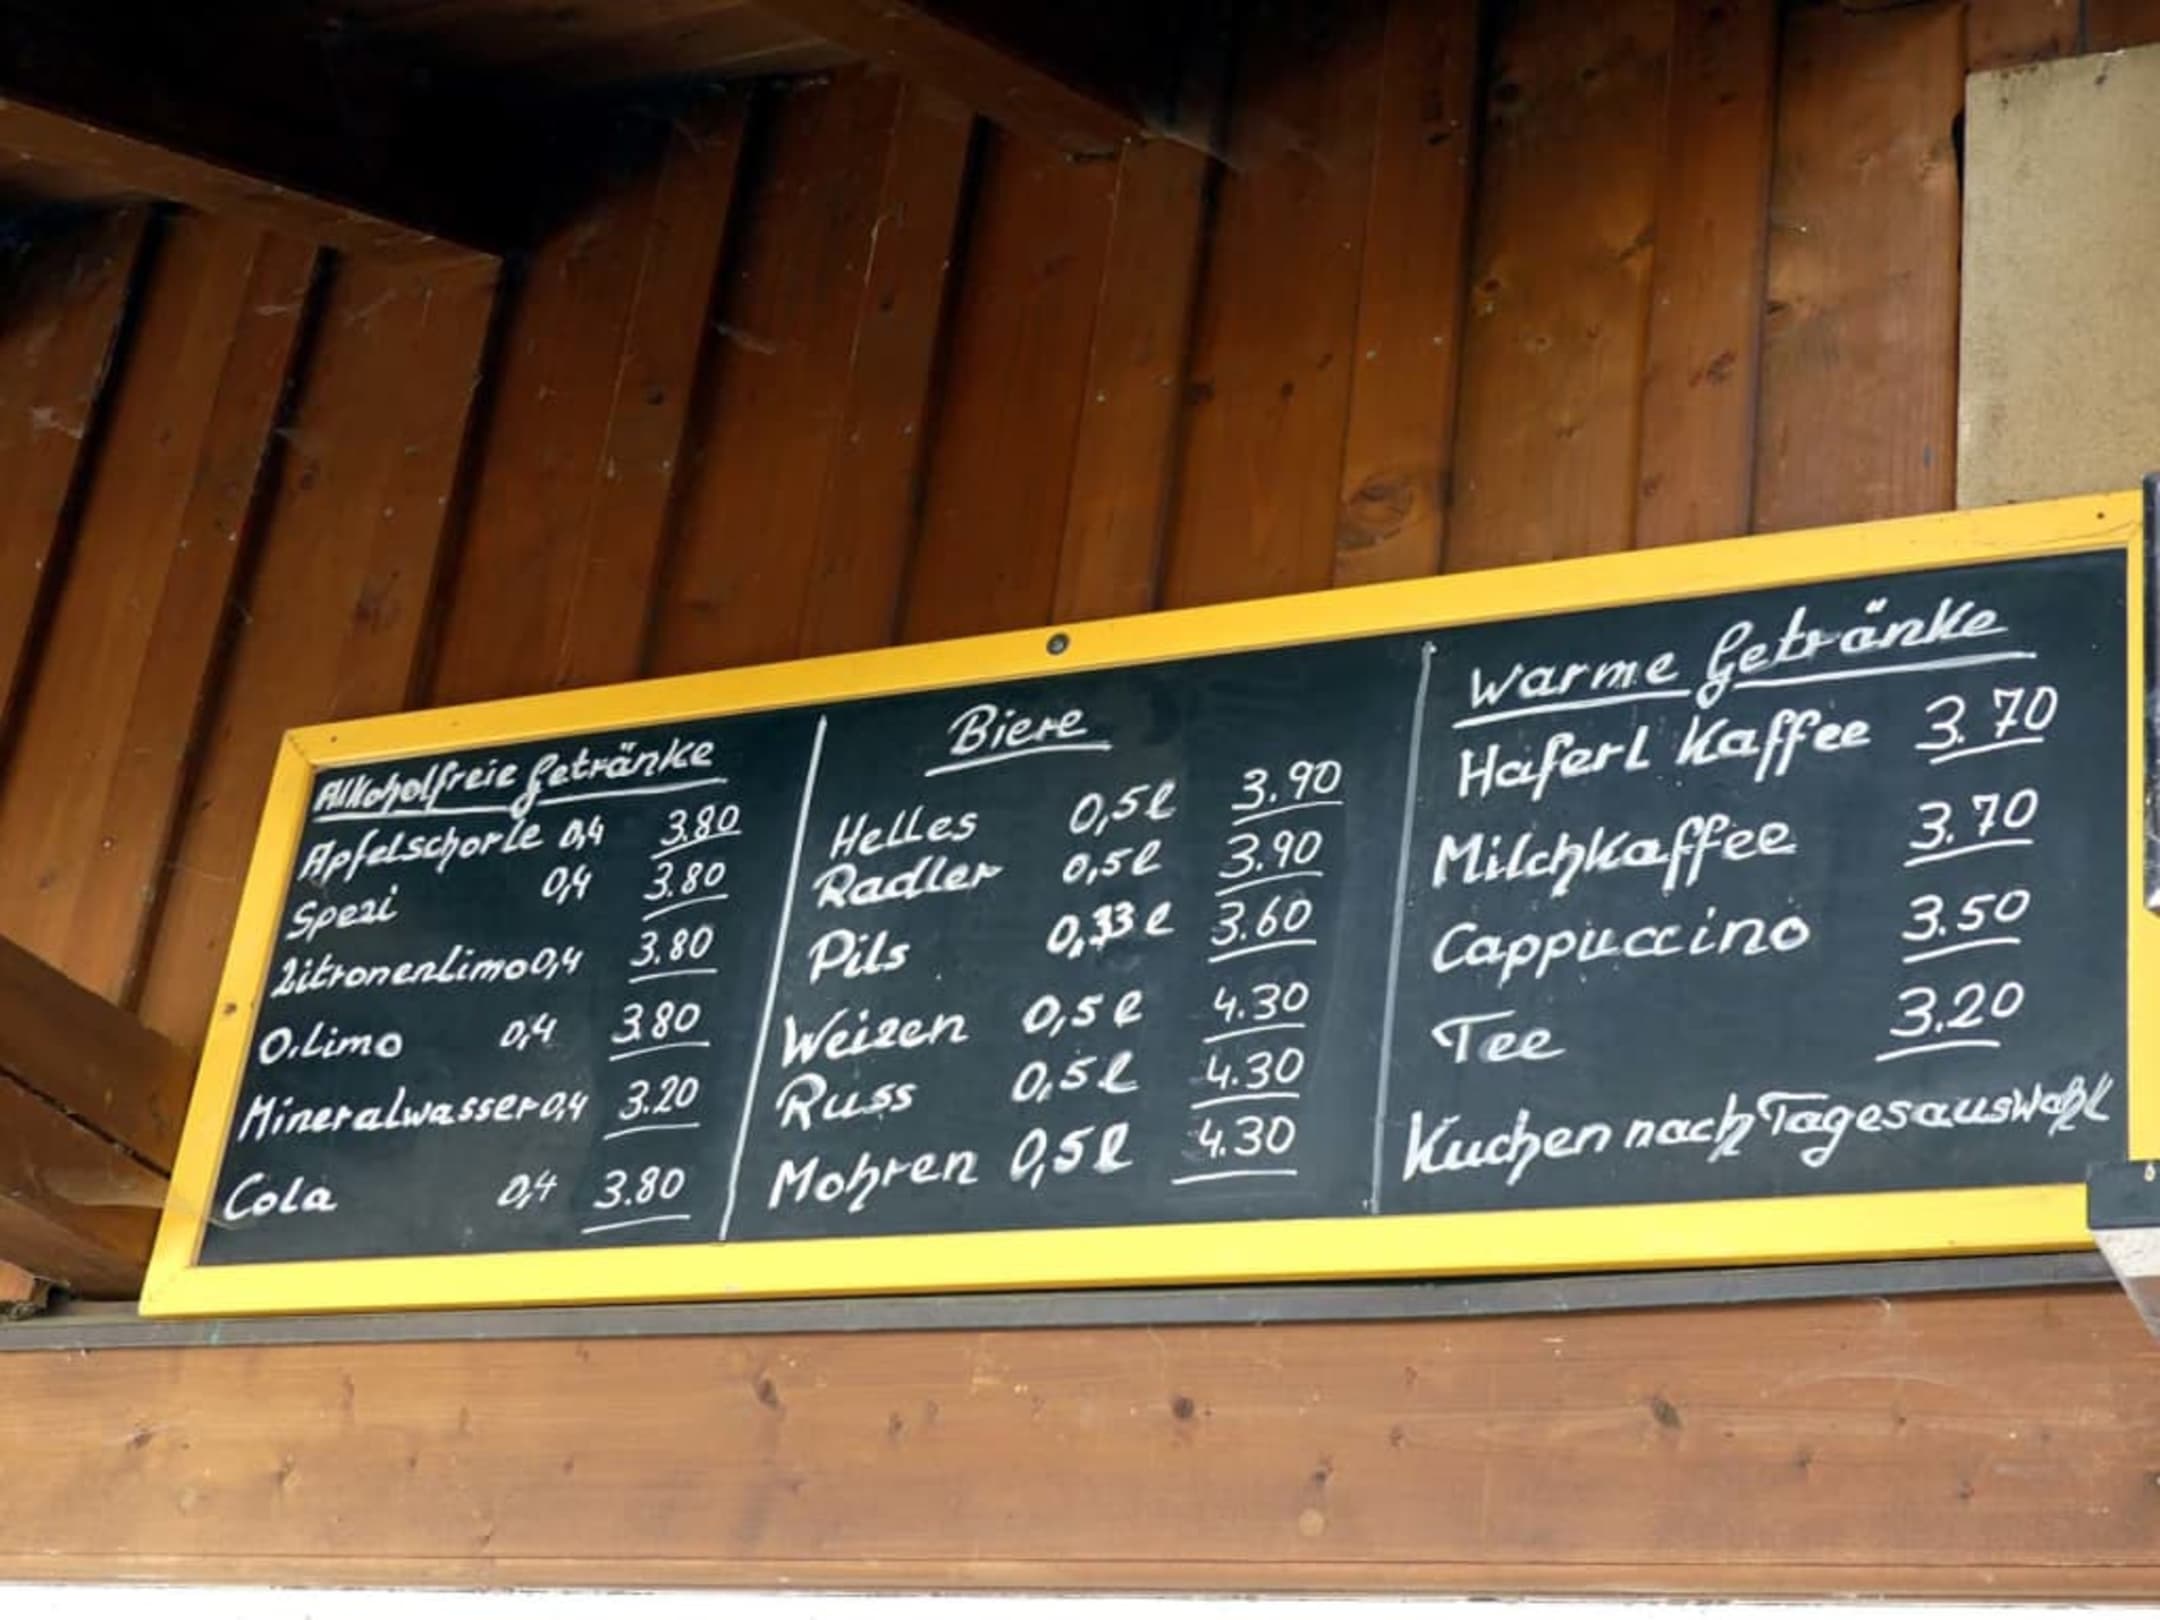 Alkoholfreie Getränke
Apfelschorle 0,4 3.80
Spezi 0,4 3.80
Zitronenlimo 0,4 3.80
O.Limo 0,4 3.80
Mineralwasser 0,4 3.20
Cola 0,4 3.80
Biere
Helles 0,5l 3.90
Radler 0,5l 3.90
Pils 0,33l 3.60
Weizen 0,5l 4.30
Russ 0,5l 4.30
Mohren 0,5l 4.30
Warme Getränke
Haferl Kaffee 3.70
Milchkaffee 3.70
Cappuccino 3.50
Tee 3.20
Kuchen nach Tagesauswahl